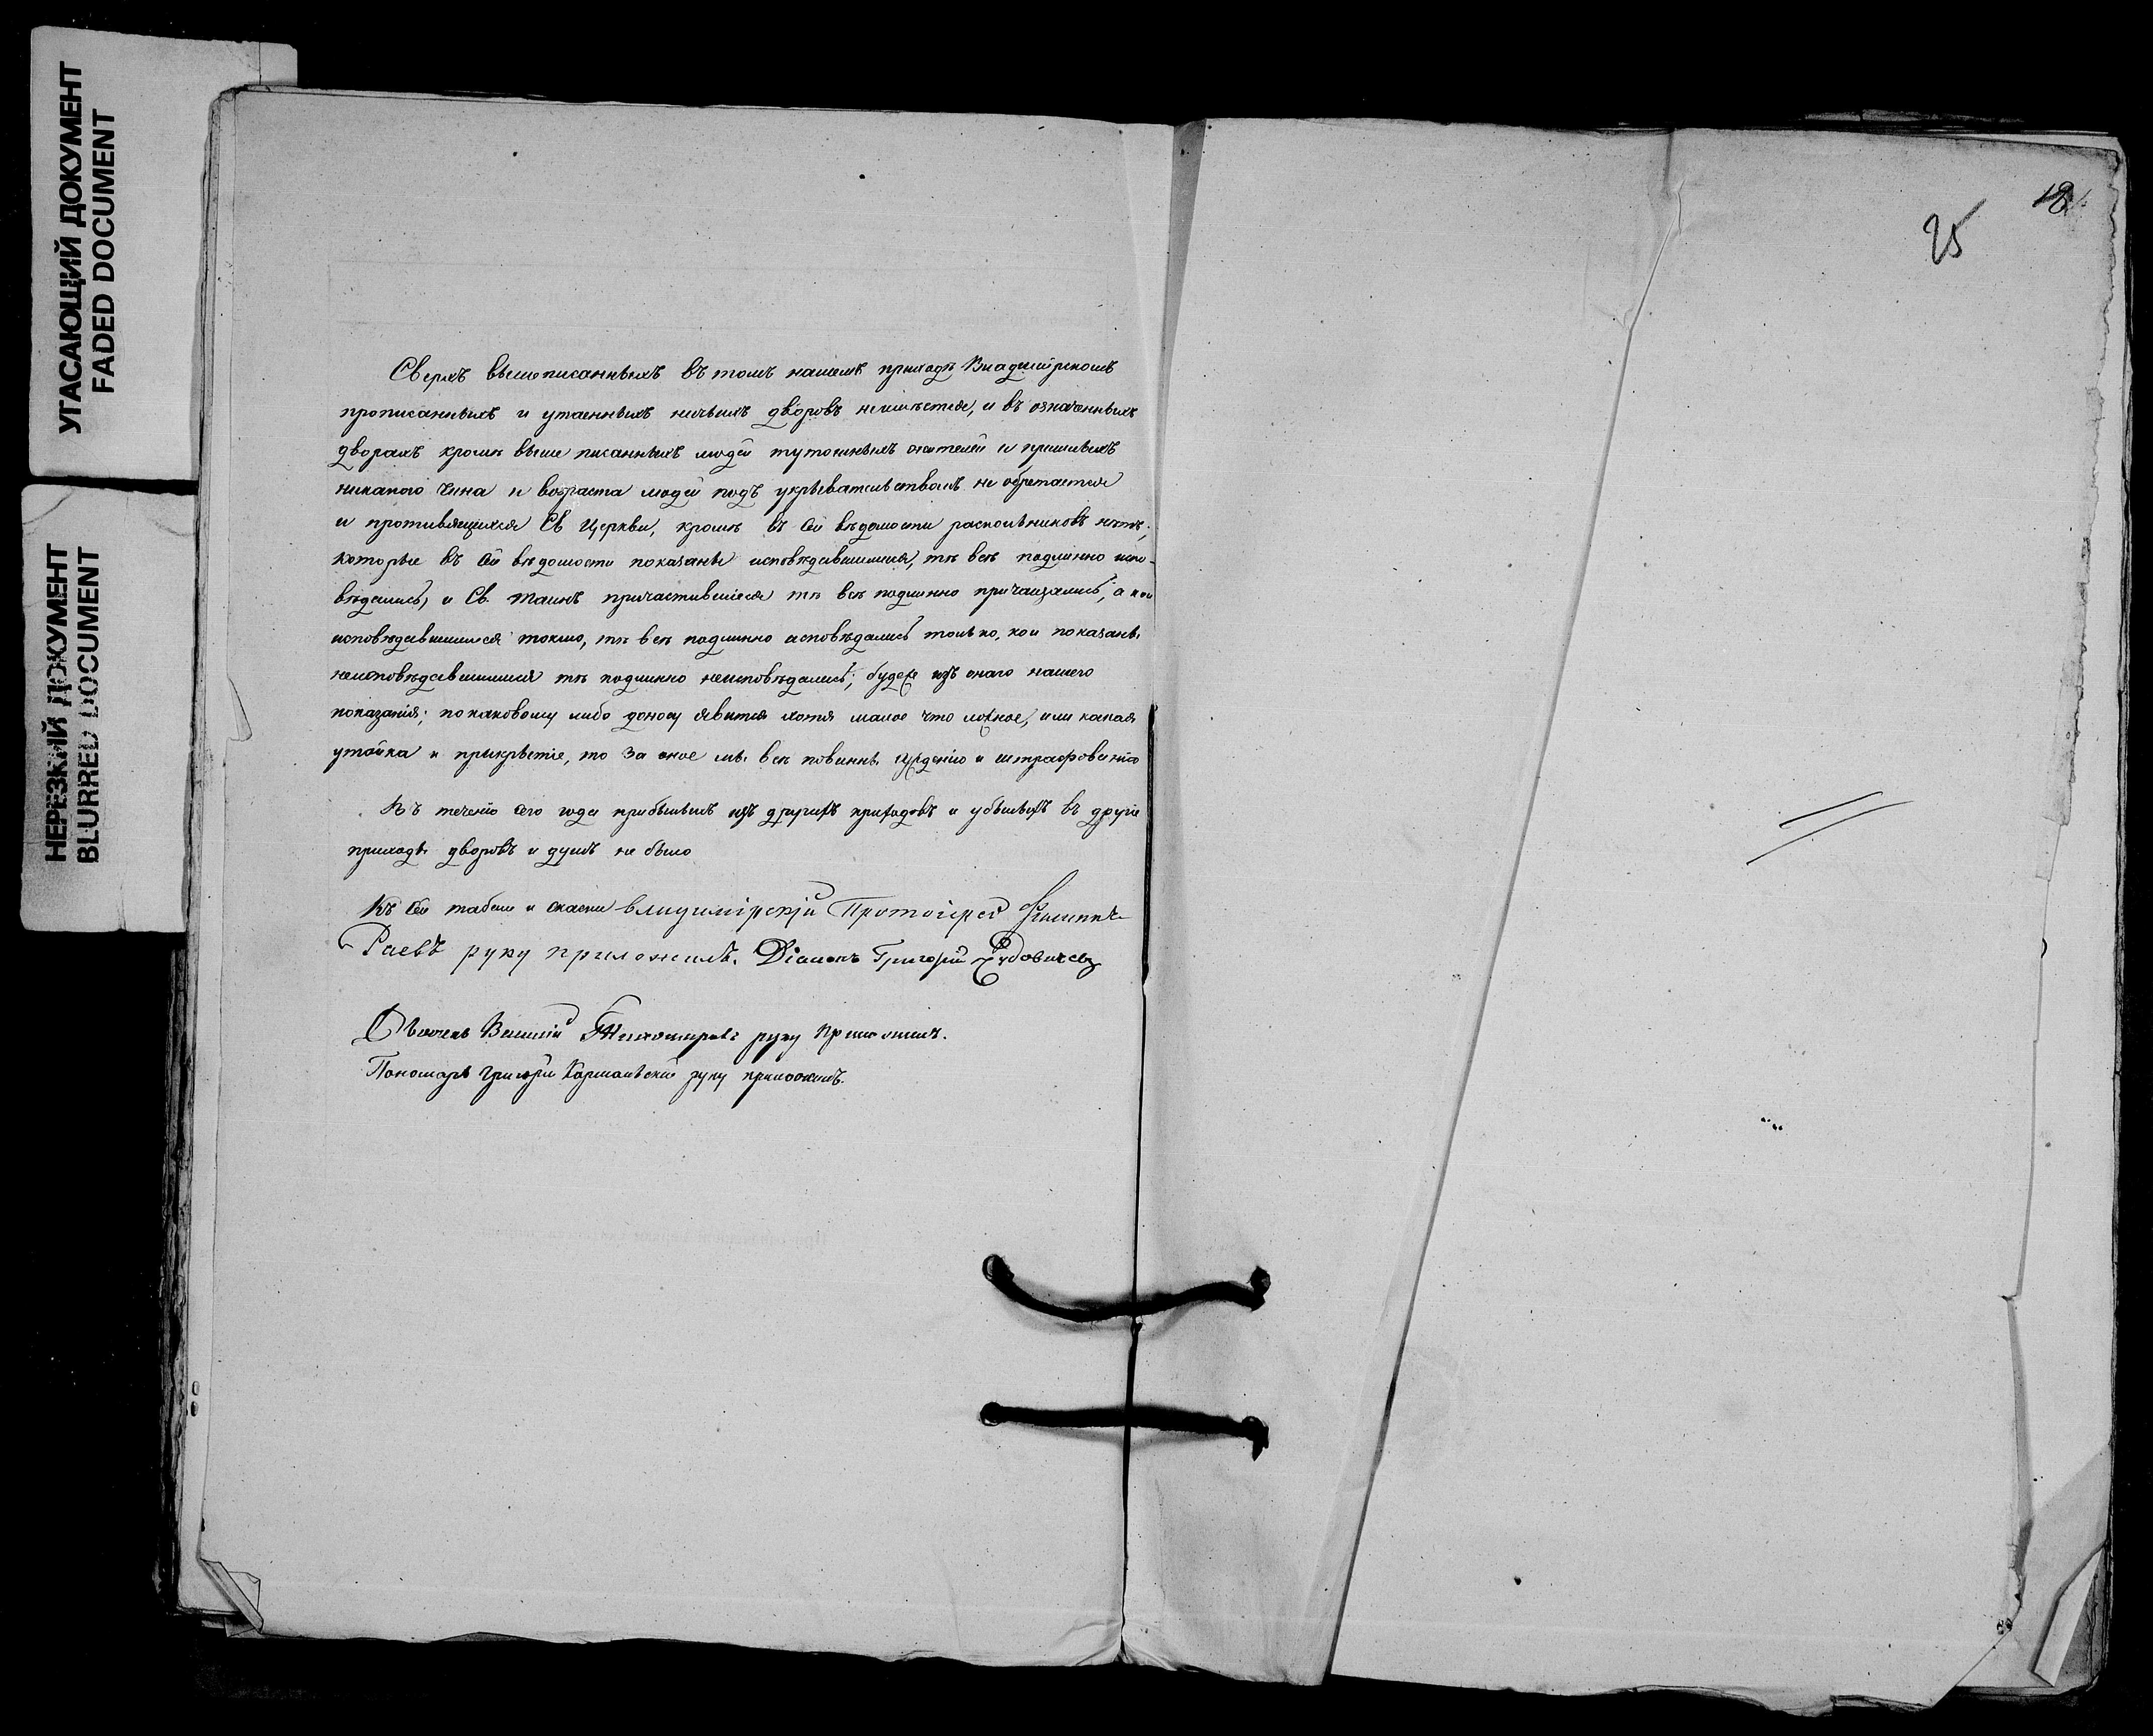 УГАСАЮЩИЙ ДОКУМЕНТ
FADED DOCUMENT
НЕРЕЗКИЙ ДОКУМЕНТ
BLURRED DOCUMENT
Сверхъ вышеписанныхъ въ томъ нашемъ приходѣ Владимірскомъ
прописанныхъ и утаенныхъ ничьихъ дворовъ неимѣется, и въ означенныхъ
дворахъ кромѣ выше писанныхъ людей тутошныхъ жителей и пришлыхъ
никакого чина и возраста людей подъ укрывательствомъ не обретается
и противящихся Св Церкви, кромѣ въ сей вѣдомости раскольниковъ нѣтъ;
которые въ сей вѣдомости показаны исповѣдавшимися, тѣ всѣ подлинно испо-
вѣдались, и Св. Таинъ причастившіеся тѣ всѣ подлинно причащались, а кои
исповѣдавшимися токмо, тѣ всѣ подлинно исповѣдались только, кои показаны
неисповѣдавшимися тѣ подлинно неисповѣдались; будеже изъ онаго нашего
показанія; покаковому либо доносу явится хотя малое что ложное, или какая
утайка и прикрытіе, то за оное мы всѣ повинны сужденію и штрафованію
Въ теченіи сего года прибылыхъ изъ другихъ приходовъ и убылыхъ въ другіе
приходы дворовъ и душъ не было
Къ сей табели и сказки владимірскій Протоіерей
Раевъ руку приложилъ. Діаконъ Григорій
Дьячекъ Василій Тихомировъ руку приложилъ.
Пономарь Григорій Кармальскій руку приложилъ.
18
25